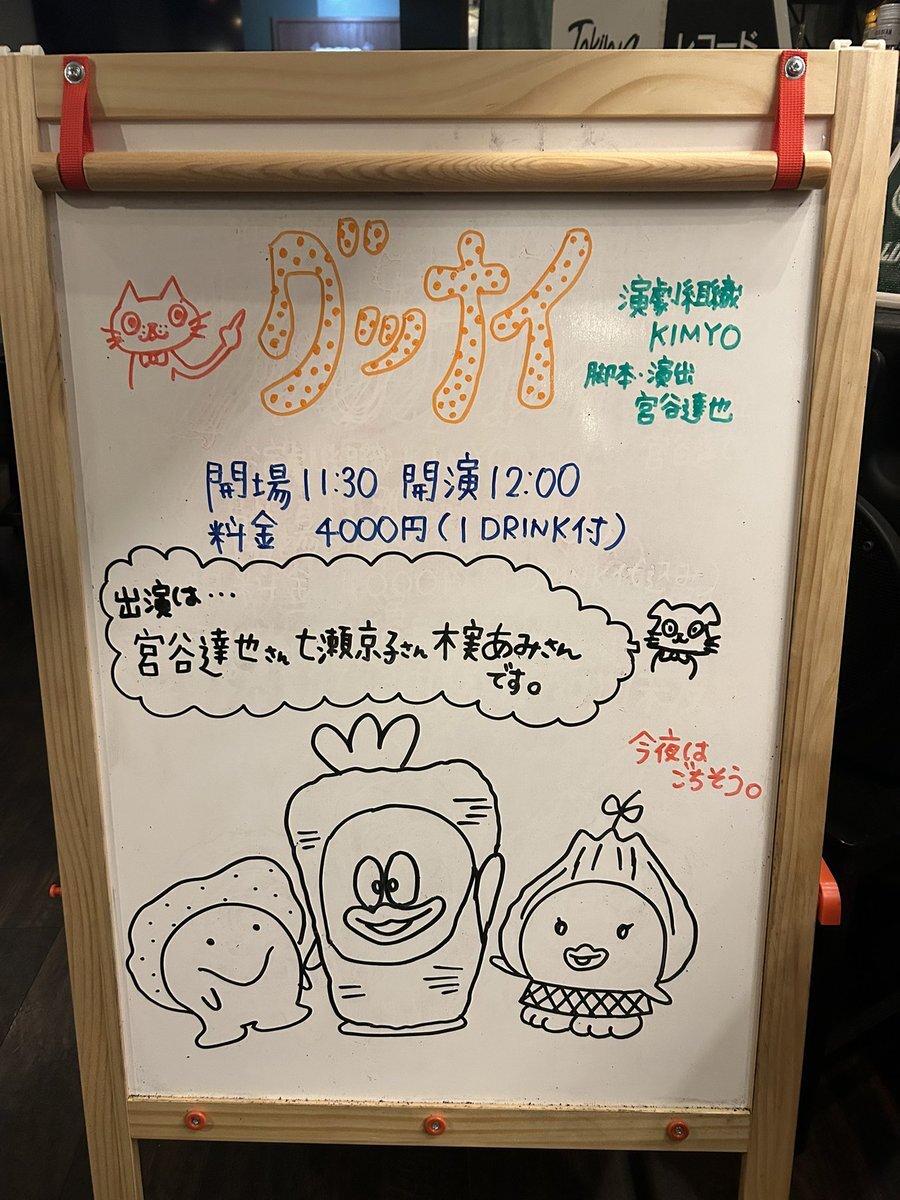 レコード
グッナイ
演劇組織
KIMYO
脚本・演出
宮谷達也
開場11:30 開演12:00
料金 4000円(1 DRINK付)
出演は…
宮谷達也さん七瀬京子さん木実あみさん
です。
今夜は
ごちそう。